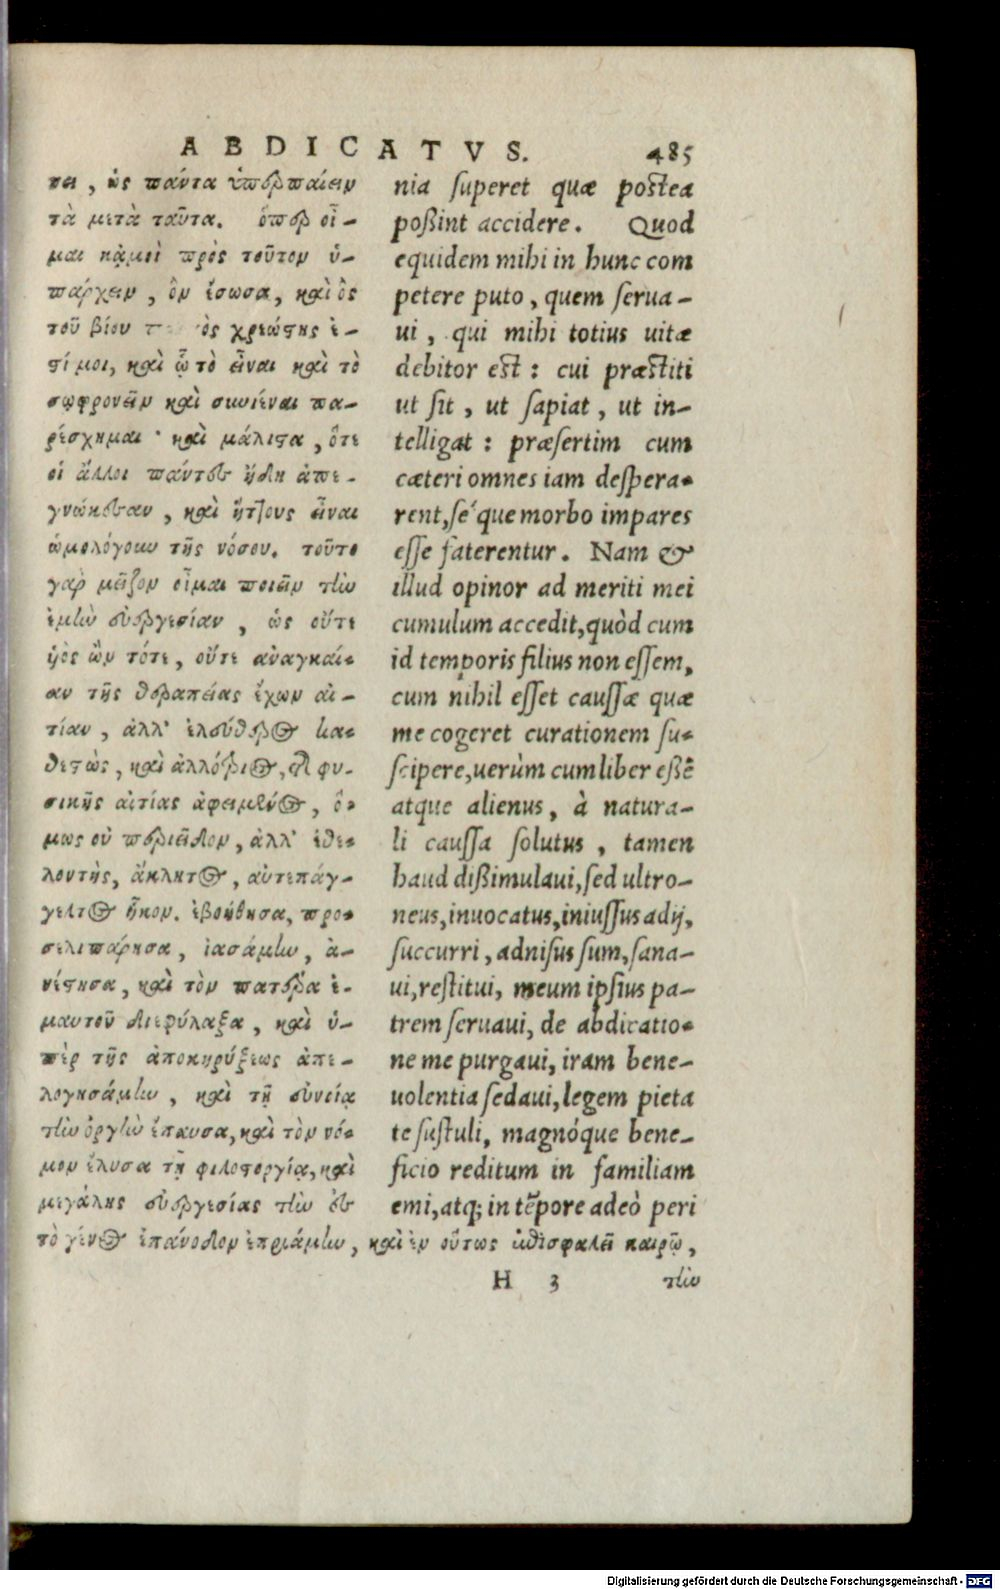 ABDICATVS. 485
πει, ὡς πάντα ὑπερπαίειν
τὰ μετὰ ταῦτα. ὅπερ οἶ-
μαι κᾀμοὶ πρὸς τοῦτον ὑ-
πάρχειν, ὃν ἔσωσα, καὶ ὃς
τοῦ βίου ὸς χρεώστης ἐ-
στί μοι, καὶ ᾧ τὸ εἶναι καὶ τὸ
σωφρονεῖν καὶ συνιέναι πα-
ρέσχημαι· καὶ μάλιστα, ὅτε
οἱ ἄλλοι πάντες ἤδη ἀπε-
γνώκεσαν, καὶ ἥττους εἶναι
ὡμολόγουν τῆς νόσου. τοῦτο
γὰρ μεῖζον οἶμαι ποιεῖν τὴν
ἐμὴν εὐεργεσίαν, ὡς οὔτε
ὑὸς ὢν τότε, οὔτε ἀναγκαί-
αν τῆς θεραπείας ἔχων αἰ-
τίαν, ἀλλ' ἐλεύθερος κα-
θεστὼς, καὶ ἀλλότριος, τῆς φυ-
σικῆς αἰτίας ἀφειμένος, ὅ-
μως οὐ περιεῖδον, ἀλλ' ἐθε-
λοντὴς, ἄκλητος, αὐτεπάγ-
γελτος ἧκον. ἐβοήθησα, προ-
σελιπάρησα, ἰασάμην, ἀ-
νέστησα, καὶ τὸν πατέρα ἐ-
μαυτοῦ διεφύλαξα, καὶ ὑ-
πὲρ τῆς ἀποκηρύξεως ἀπε-
λογησάμην, καὶ τῇ εὐνοίᾳ
τὴν ὀργὴν ἔπαυσα, καὶ τὸν νό-
μον ἔλυσα τῇ φιλοστοργίᾳ, καὶ
μεγάλης εὐεργεσίας τὴν ἐς
τὸ γένος ἐπάνοδον ἐπριάμην, καὶ ἐν οὕτως ἐπισφαλεῖ καιρῷ,
nia superet quæ postea
poßint accidere. Quod
equidem mihi in hunc com
petere puto, quem serua-
ui, qui mihi totius uitæ
debitor est: cui præstiti
ut sit, ut sapiat, ut in-
telligat: præsertim cum
cæteri omnes iam despera-
rent, sé que morbo impares
esse faterentur. Nam &
illud opinor ad meriti mei
cumulum accedit, quòd cum
id temporis filius non essem,
cum nihil esset caussæ quæ
me cogeret curationem su-
scipere, uerùm cum liber eßẽ
atque alienus, à natura-
li caussa solutus, tamen
haud dißimulaui, sed ultro-
neus, inuocatus, iniussus adij,
succurri, adnisus sum, sana-
ui, restitui, meum ipsius pa-
trem seruaui, de abdicatio-
ne me purgaui, iram bene-
uolentia sedaui, legem pieta
te sustuli, magnóque bene-
ficio reditum in familiam
emi, atq; in tẽpore adeò peri
H 3 τὴν
Digitalisierung gefördert durch die Deutsche Forschungsgemeinschaft - DFG